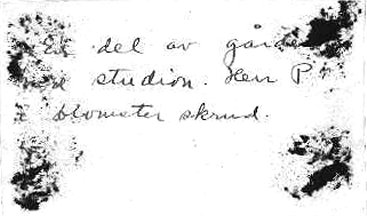 En del av gården
med studion. Herr P
i blomster skrud.